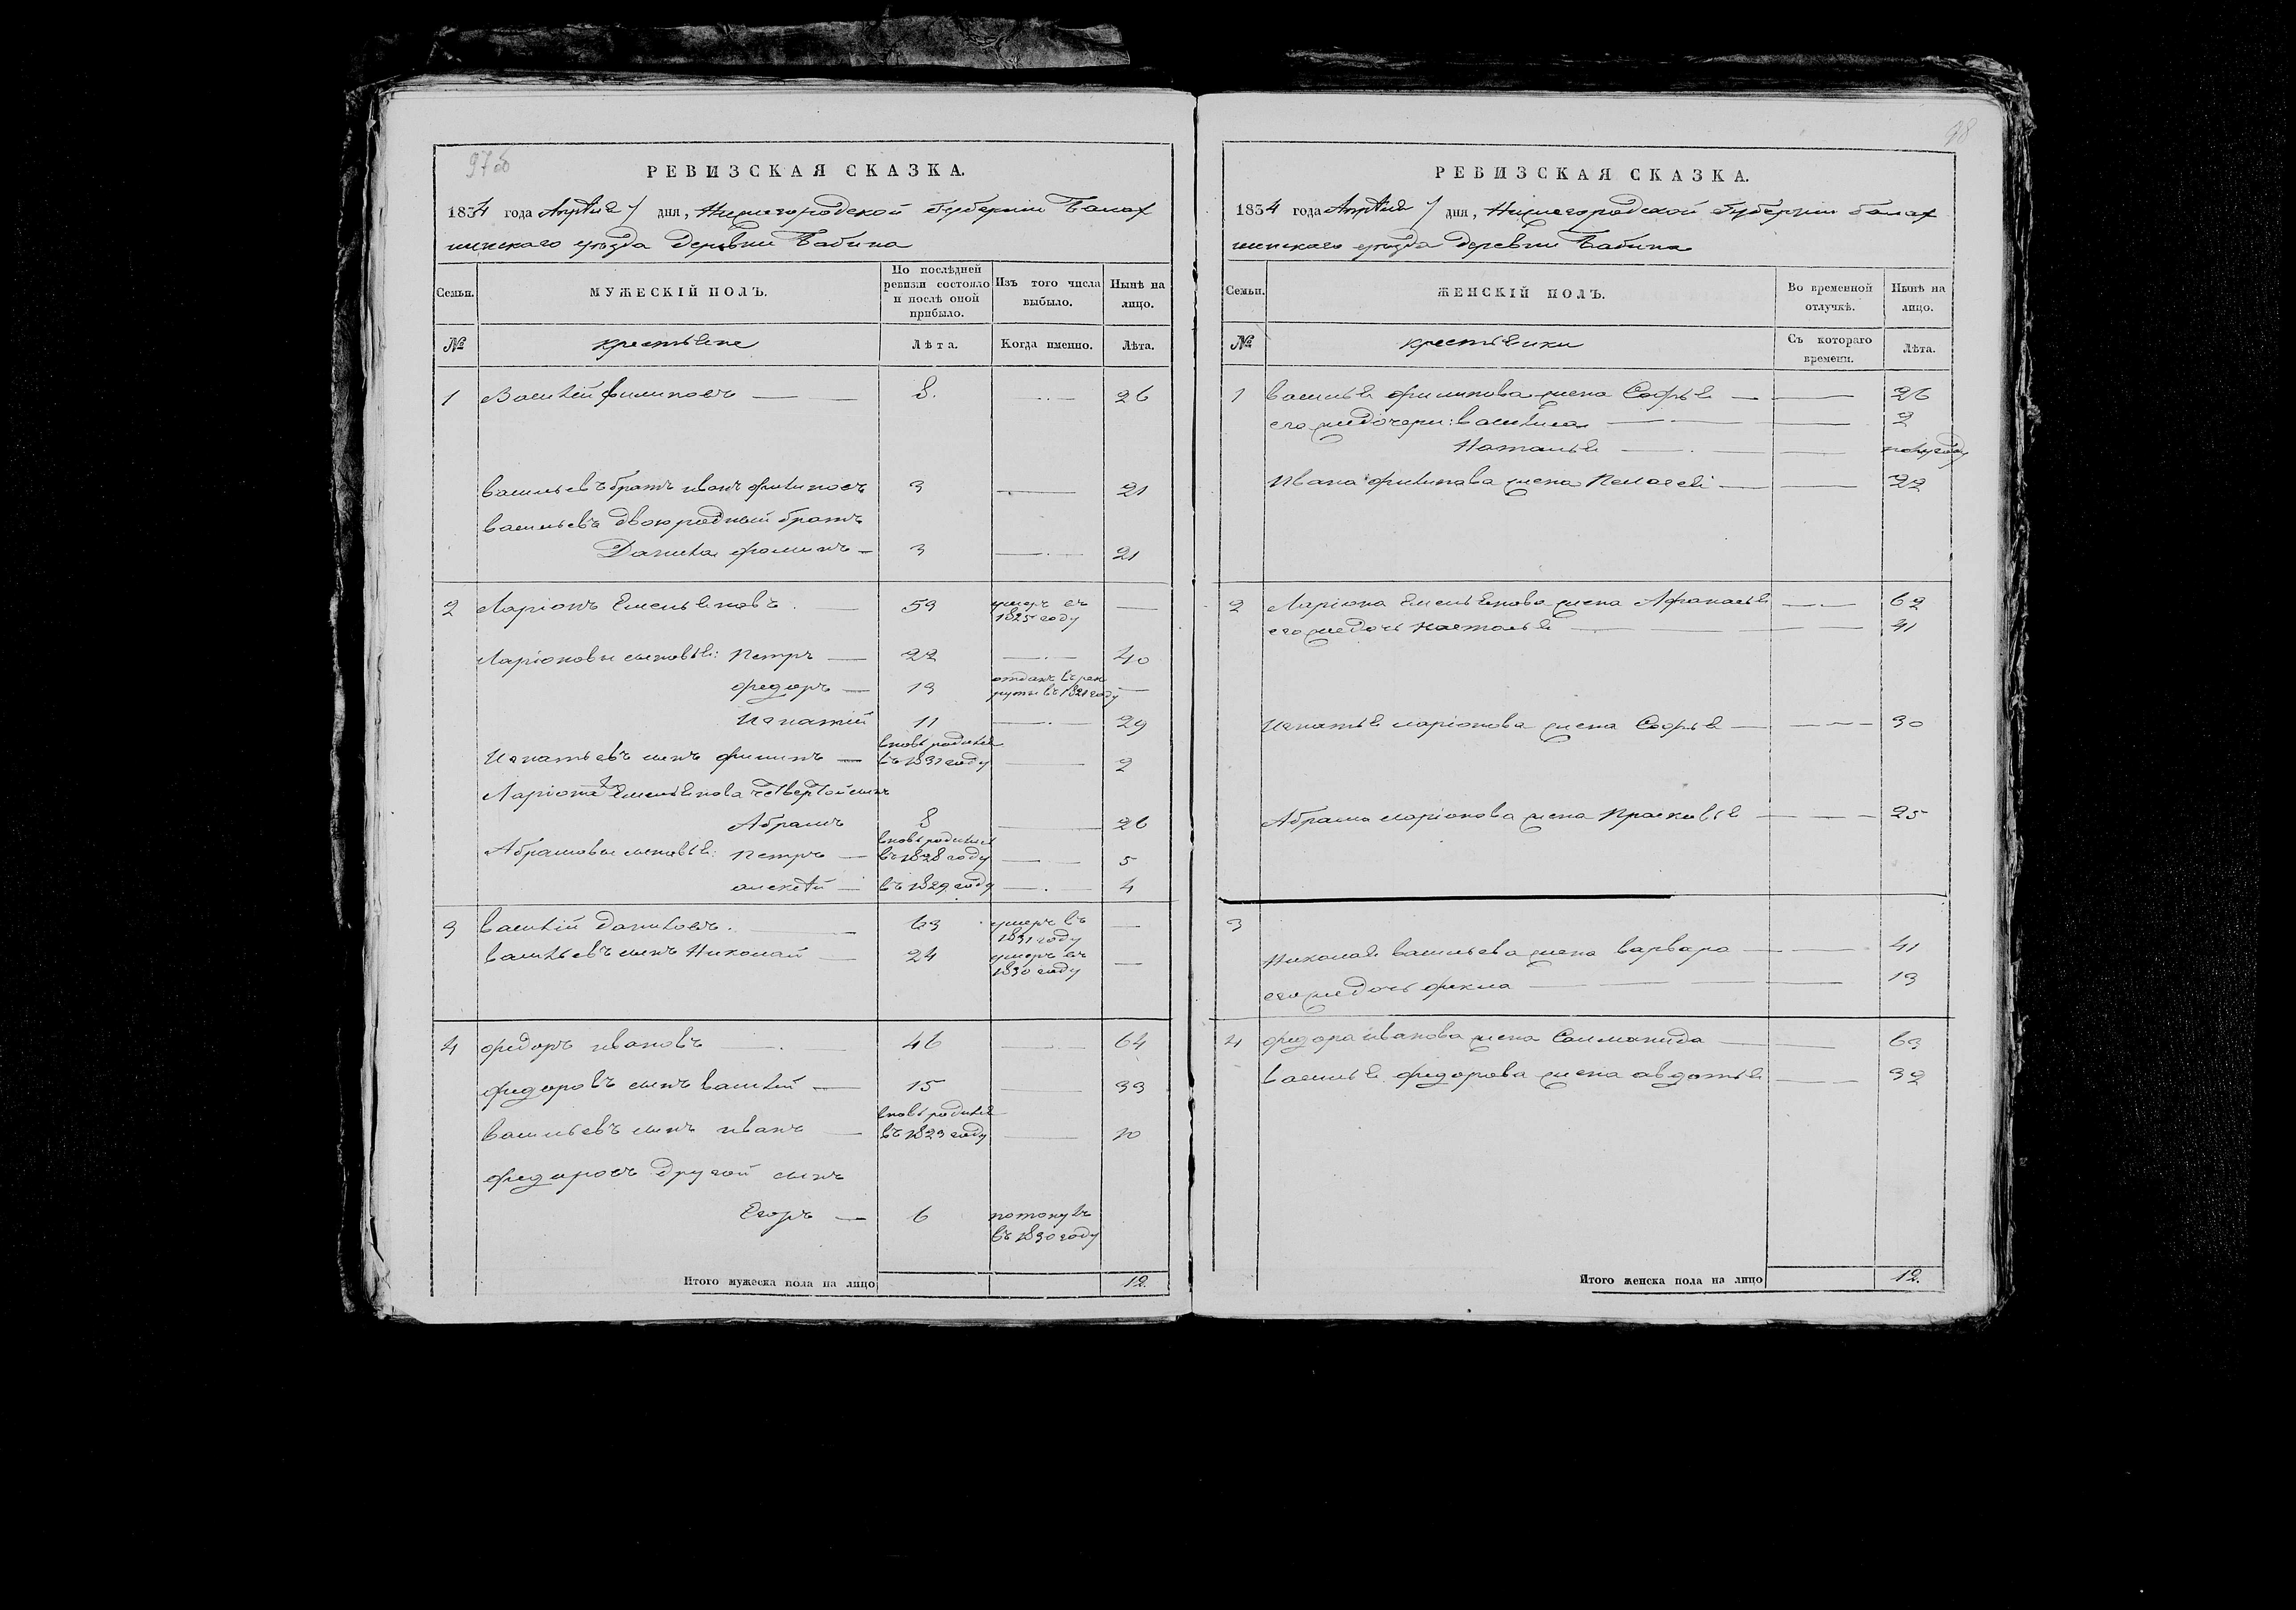 97об
РЕВИЗСКАЯ СКАЗКА.
1834 года Апреля 7 дня, Нижегородской Губернии Балах
нинскаго уезда деревни Бабина
Семьи. МУЖЕСКІЙ ПОЛЪ. По послѣдней ревизіи состояло и послѣ оной прибыло. Изъ того числа выбыло. Нынѣ на лицо.
№ крестьяне Лѣта. Когда именно. Лѣта.
1 Василей филиповъ 8. 26
васильевъ братъ иванъ филиповъ 3 21
васильевъ двоюродный братъ
Данила фоминъ 3 21
2 Ларіонъ Емельяновъ 53 умеръ въ 1825 году
Ларіоновы сыновья: Петръ 22 40
федоръ 13 отданъ въ рекруты въ 1821 году
Игнатій 11 29
Игнатьевъ сынъ филипъ вновь родился въ 1831 году 2
Ларіона Емельянова четвертой сынъ
Абрамъ 8 26
Абрамовы сыновья: Петръ вновь родился въ 1828 году 5
алексей въ 1829 году 4
3 василій даниловъ 63 умеръ въ 1831 году
васильевъ сынъ Николай 24 умеръ въ 1830 году
4 федоръ ивановъ 46 64
федоровъ сынъ василей 15 33
васильевъ сынъ иванъ вновь родился въ 1823 году 10
федоровъ другой сынъ
Егоръ 6 потонулъ въ 1830 году
Итого мужеска пола на лицо 12
98
РЕВИЗСКАЯ СКАЗКА.
1834 года Апреля 7 дня, Нижегородской Губернии балах
нинскаго уезда деревни Бабина
Семьи. ЖЕНСКІЙ ПОЛЪ. Во временной отлучкѣ. Нынѣ на лицо.
№ крестьянки Съ котораго времени. Лѣта.
1 василья филипова жена Софья 26
его же дочери: василиса 2
Наталья полугоду
Ивана филипова жена Пелагея 22
2 Ларіона Емельянова жена Афанасья 62
его же дочь настасья 41
Игнатья ларіонова жена Софья 30
Абрама ларіонова жена Прасковья 25
3
Николая васильева жена варвара 41
его же дочь фекла 13
4 федора иванова жена Саломанида 63
василья федорова жена авдотья 32
Итого женска пола на лицо 12.